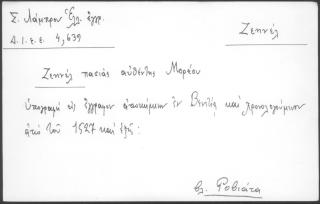 Σ. Λάμπρου Ἑλλ. ἔγγρ.
Δ.Ι.Ε.Ε. 4,639
Ζεηνέλ
Ζεηνέλ πασιᾶς αὐθέντης Μορέου
ὑπογραφὴ εἰς ἔγγραφον ἐν Βενετίᾳ καὶ χρονολογούμενον
ἀπὸ τοῦ 1527 καὶ ἑξῆς:
βλ. Ροβιάτα